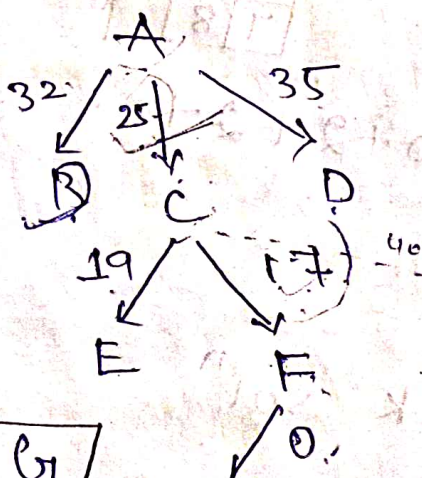 A
32 25 35
B C D
19 17 40
E F
0
G